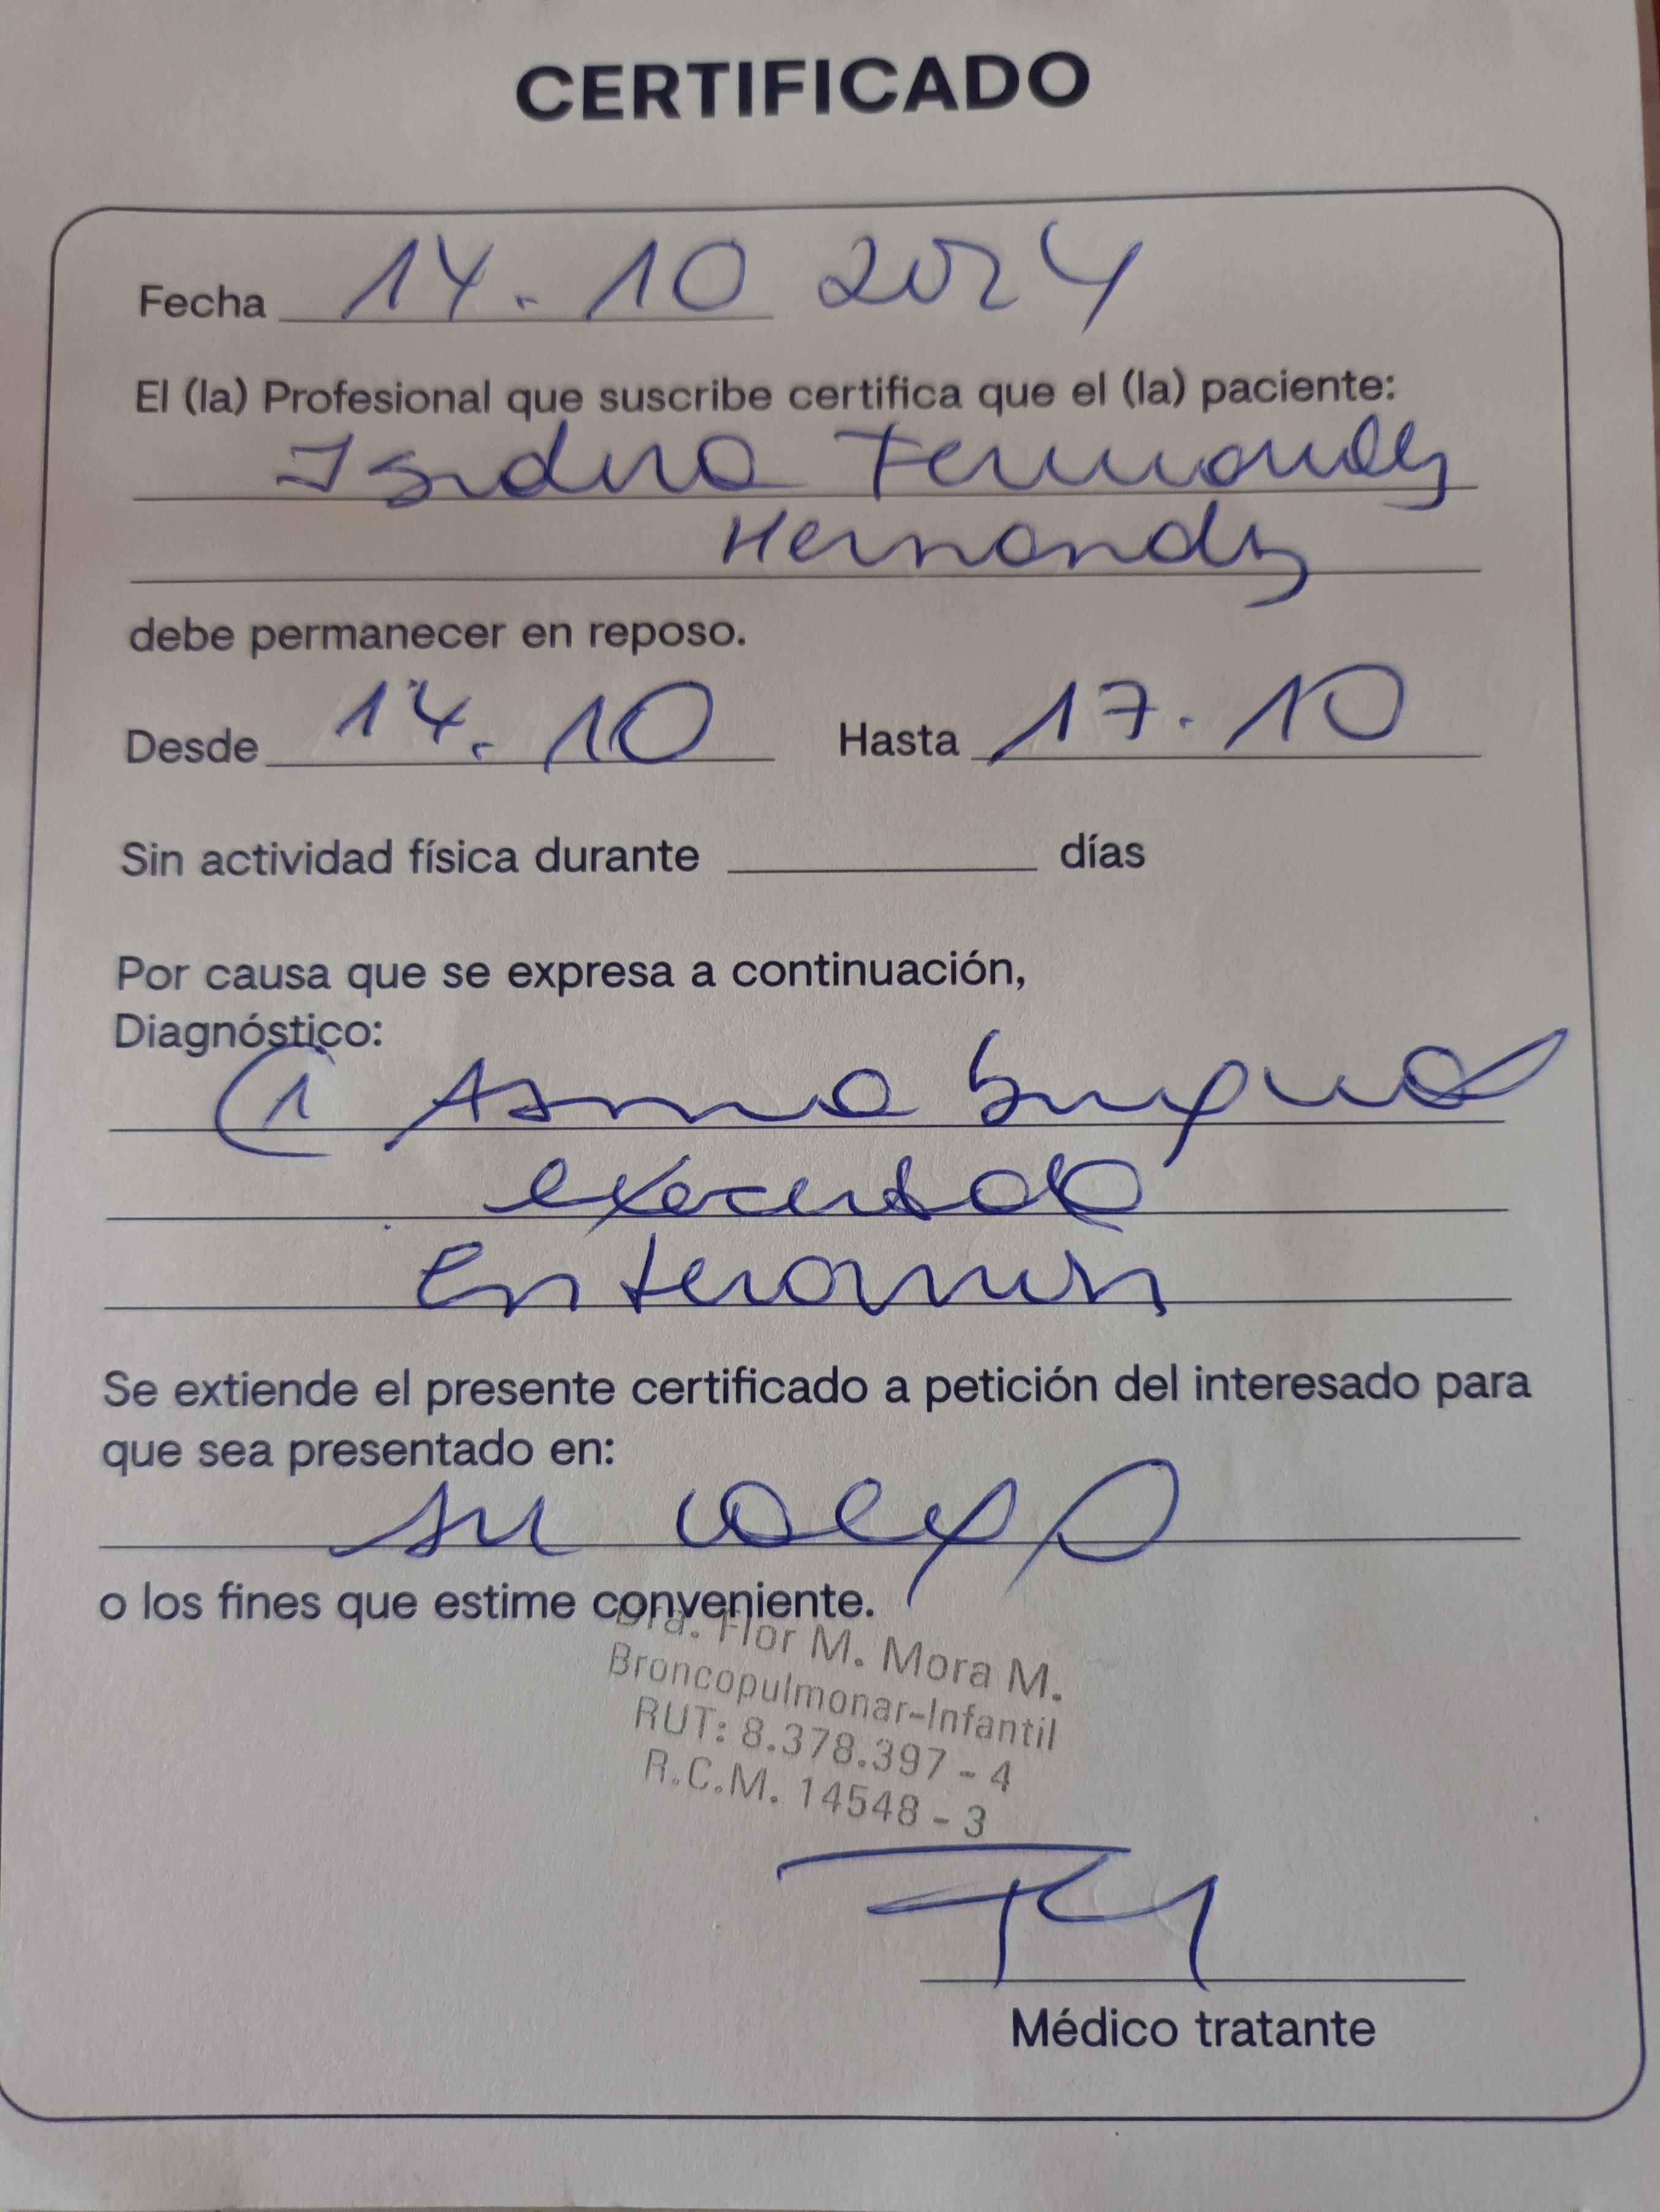 CERTIFICADO
Fecha 14.10 2024
El (la) Profesional que suscribe certifica que el (la) paciente:
Isidora Fernandez
Hernandz
debe permanecer en reposo.
Desde 14.10 Hasta 17.10
Sin actividad física durante días
Por causa que se expresa a continuación,
Diagnóstico:
(1 Asma
exacerbada
Se extiende el presente certificado a petición del interesado para
que sea presentado en:
su colegio
o los fines que estime conveniente.
Dra. Flor M. Mora M.
Broncopulmonar-Infantil
RUT: 8.378.397 - 4
R.C.M. 14548 - 3
Médico tratante